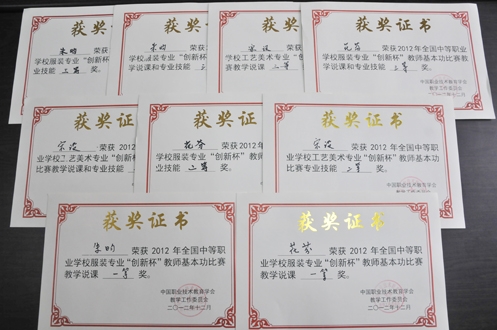 获奖证书
荣获2012年全国中等职
学校服装专业“创新杯”
教学说课和专业技能
获奖证书
荣获
学校服装专业“创新杯”
教学说课和专业技能
获奖证书
荣获2012
学校工艺美术专业“创新杯”
赛教学说课和专业技能 二等
获奖证书
荣获2012年全国中等职业
学校服装专业“创新杯”教师基本功比赛
教学说课和专业技能 二等 奖。
中国职业技术教育学会
教学工作委员会
二〇一二年十二月
获奖证书
荣获2012
业学校工艺美术专业“创新杯”
比赛教学说课和专业技能
获奖证书
荣获2012
学校服装专业“创新杯”
专业技能
获奖证书
荣获2012年全国中等职
业学校工艺美术专业“创新杯”教师基本功
比赛专业技能 二等 奖。
中国职业技术教育学会
教学工作委员会
二〇一二年十二月
获奖证书
荣获2012年全国中等职
业学校服装专业“创新杯”教师基本功比赛
教学说课 一等 奖。
中国职业技术教育学会
教学工作委员会
二〇一二年十二月
获奖证书
荣获2012年全国中等职
业学校服装专业“创新杯”教师基本功比赛
教学说课 一等 奖。
中国职业技术教育学会
教学工作委员会
二〇一二年十二月